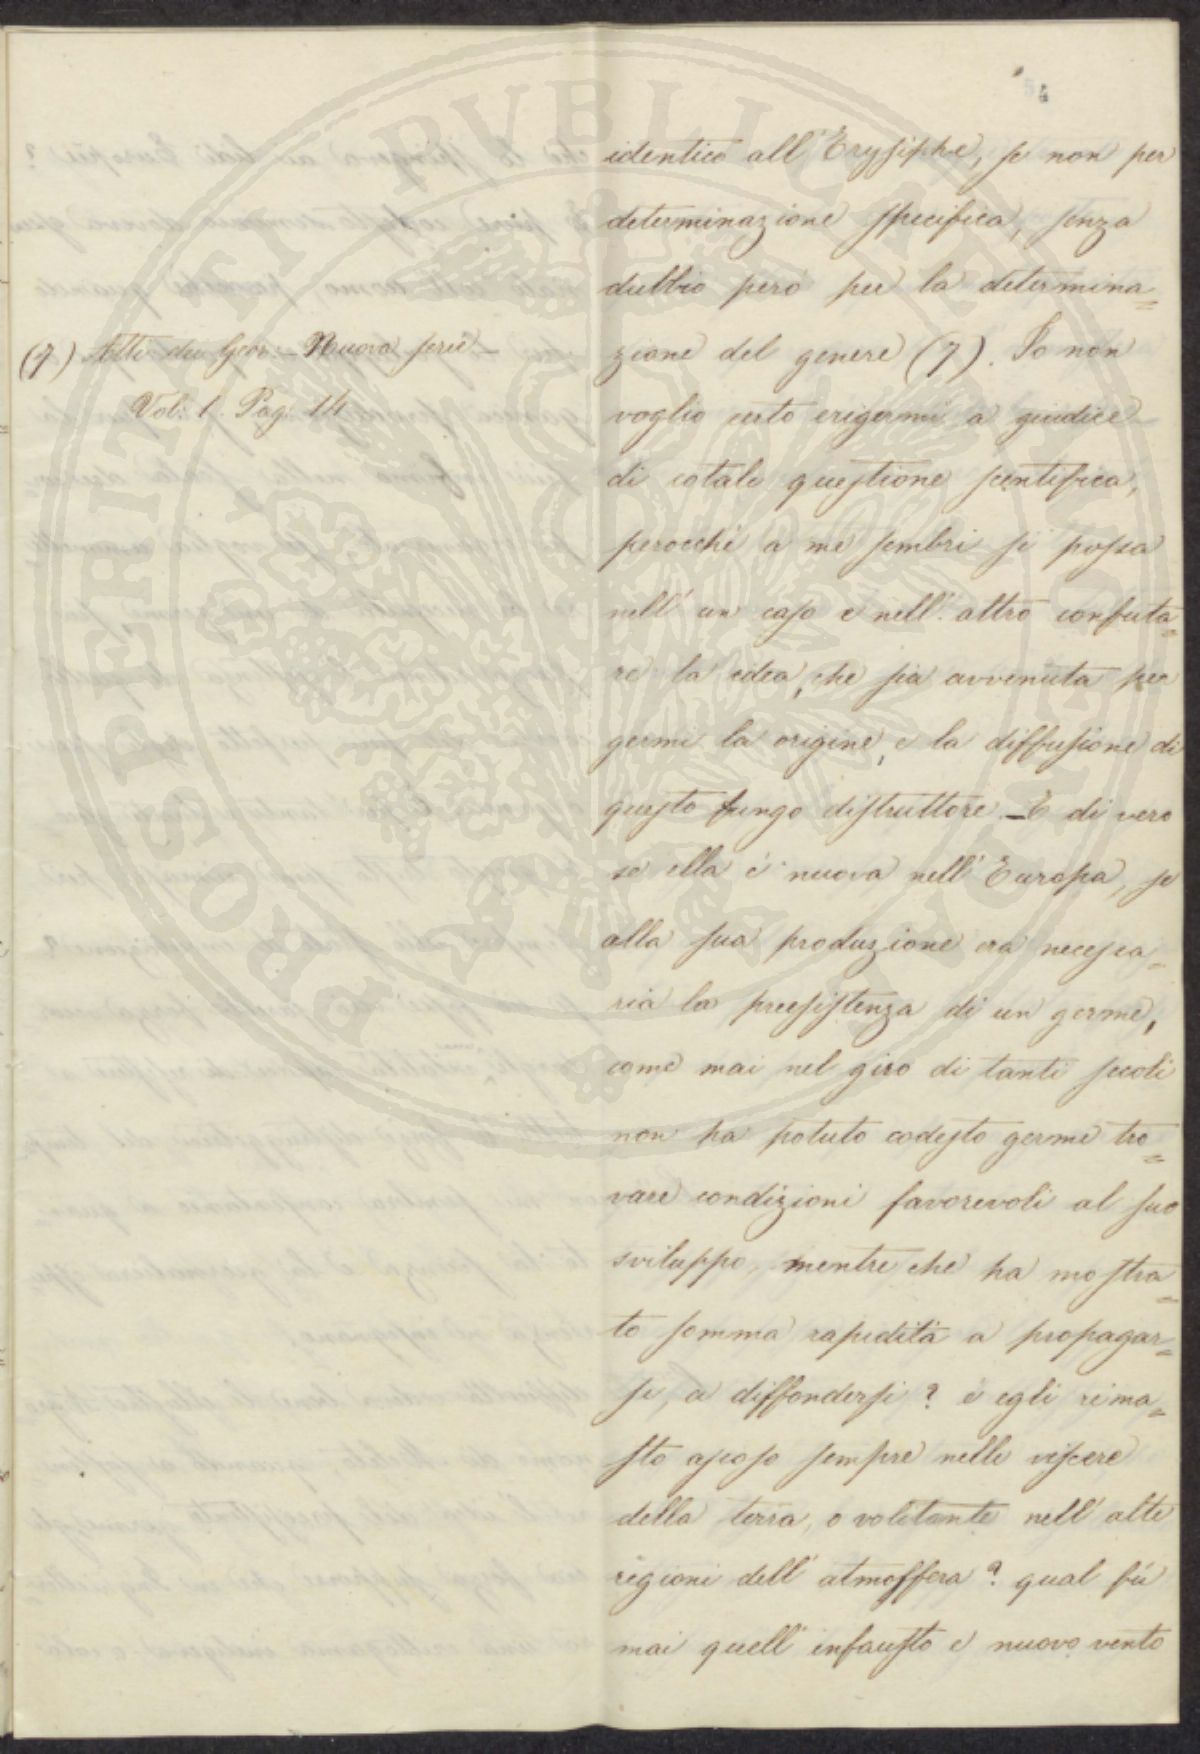 54
identico all'Erysiphe, se non per
determinazione specifica, senza
dubbio però per la determina=
zione del genere (7). Io non
voglio certo erigermi a giudice
di cotale questione scentifica,
perocchè a me sembri si possa
nell'un caso e nell'altro confuta=
re la idea, che sia avvenuta per
germi la origine, e la diffusione di
questo fungo distruttore _ E di vero
se ella è nuova nell'Europa, se
alla sua produzione era necessa=
ria la preesistenza di un germe,
come mai nel giro di tanti secoli
non ha potuto codesto germe tro=
vare condizioni favorevoli al suo
sviluppo, mentre che ha mostra=
to somma rapidità a propagar=
si, a diffondersi? è egli rima=
sto ascoso sempre nelle viscere
della terra, o volitante nell'alte
regioni dell'atmosfera? qual fù
mai quell'infausto e nuovo vento
(7.) Atti dei Geor: _ Nuova serie _
Vol: 1. Pag: 14
PROSPERITATI PVBLICAE